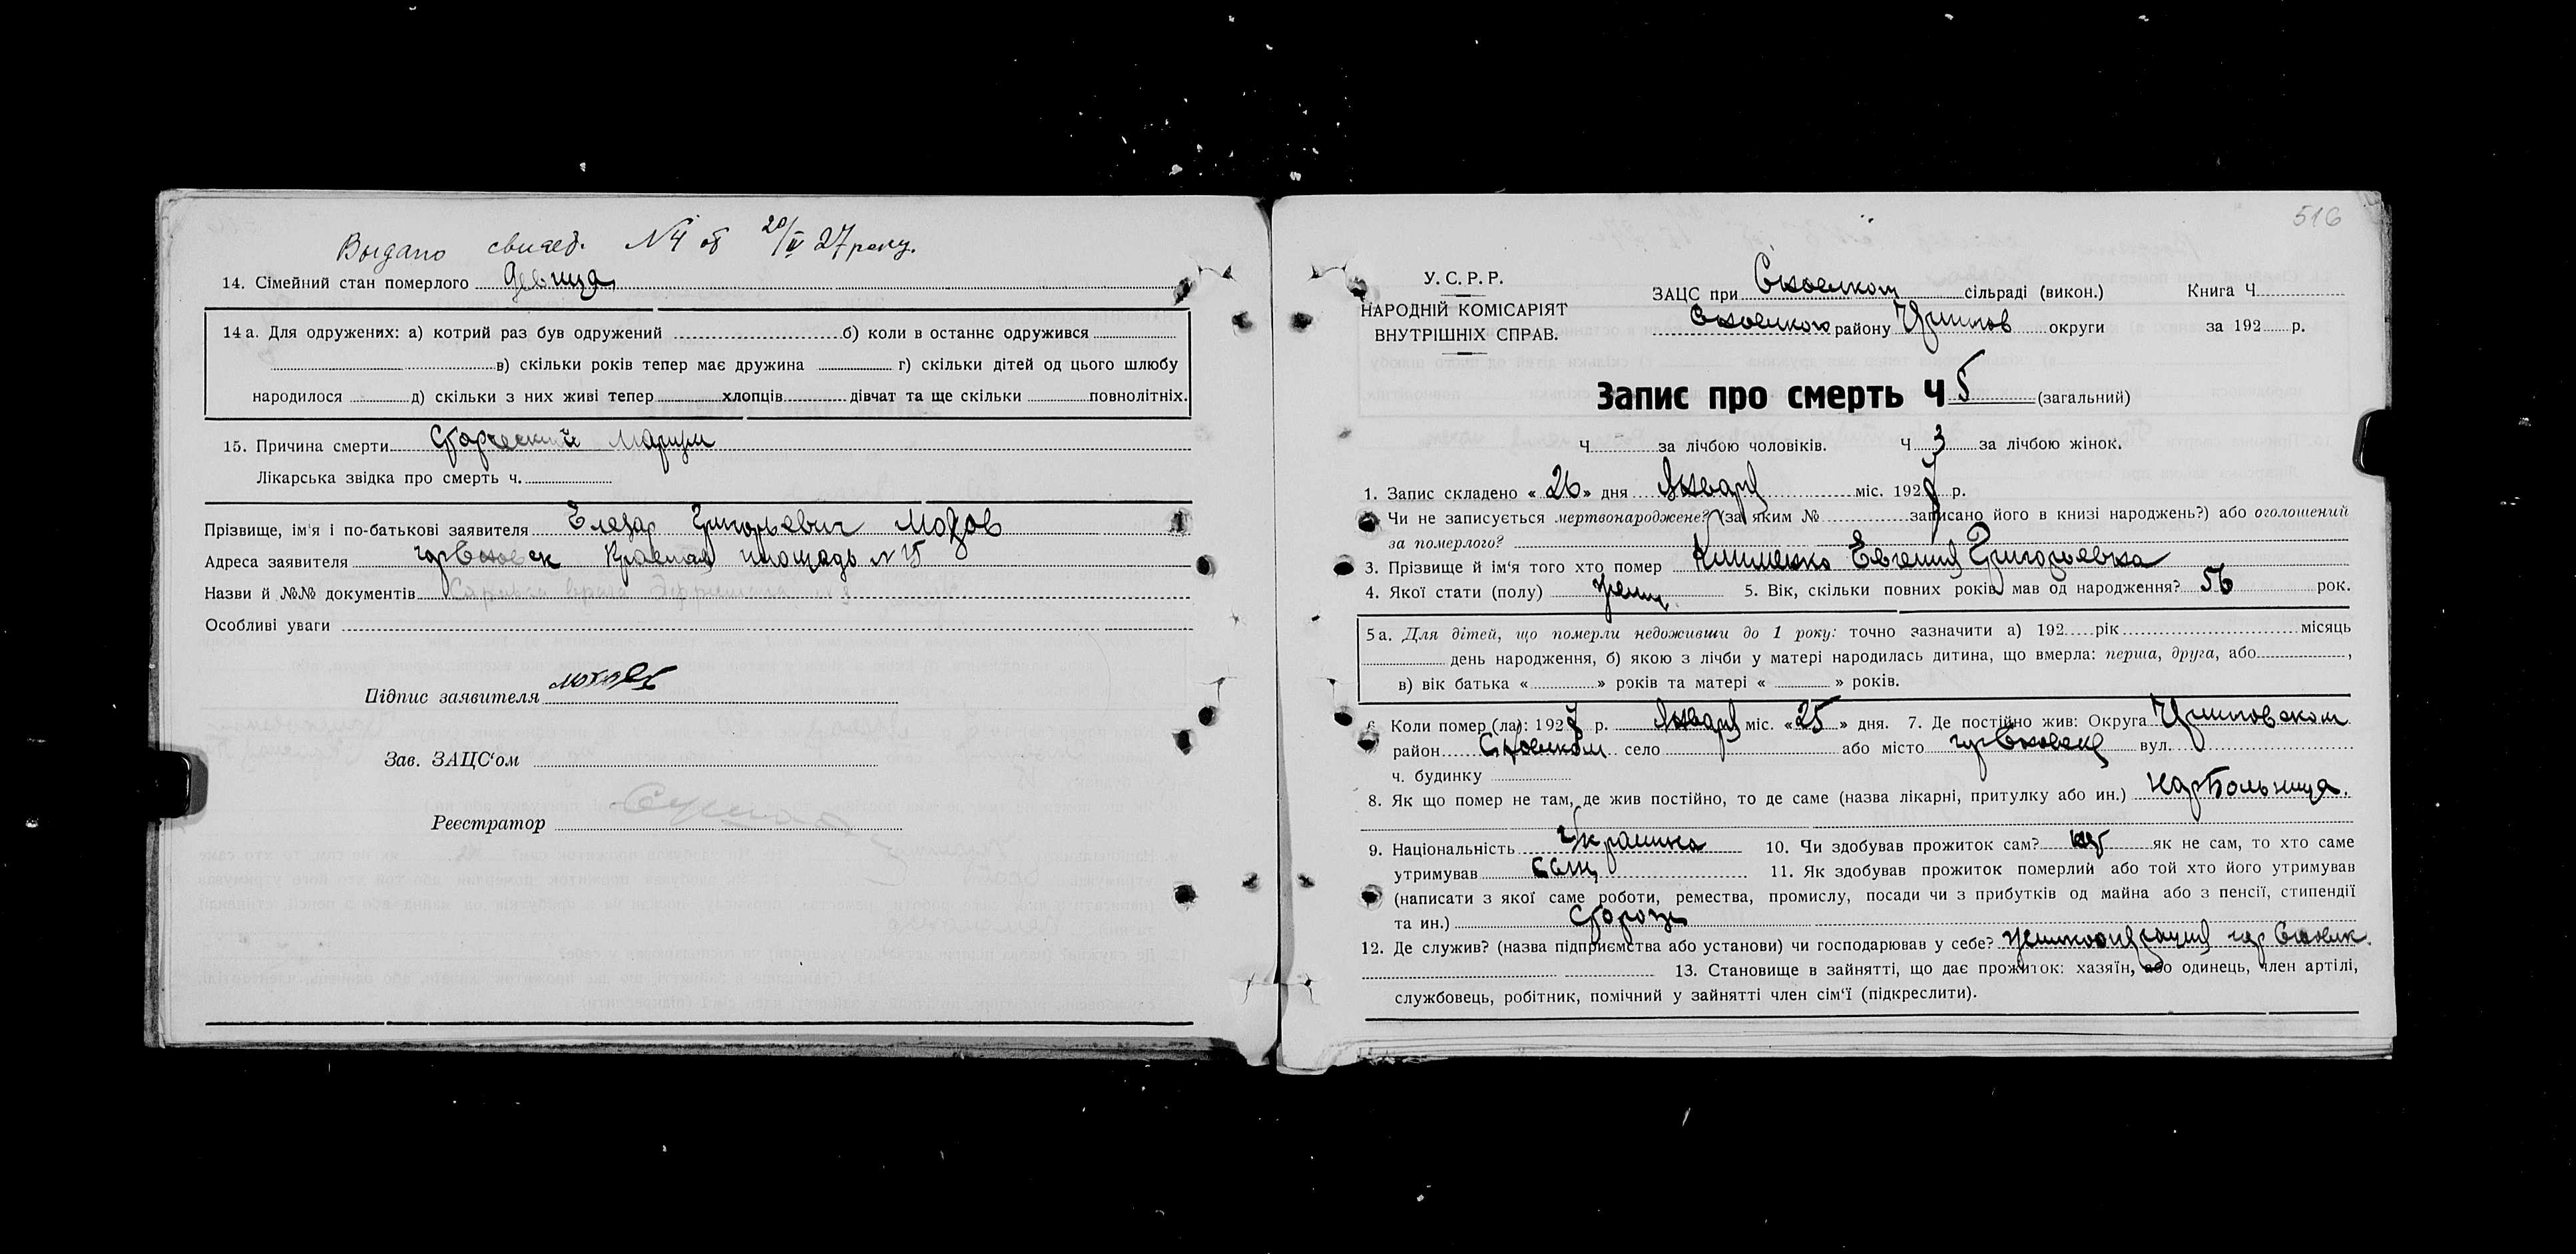 Выдано свидет. №4 от 20/IV 27 року.
14. Сімейний стан померлого девица
14 а. Для одружених: а) котрий раз був одружений б) коли в останнє одружився
в) скільки років тепер має дружина г) скільки дітей од цього шлюбу
народилося д) скільки з них живі тепер хлопців дівчат та ще скільки повнолітніх.
15. Причина смерти Старческий
Лікарська звідка про смерть ч.
Прізвище, ім'я і по-батькові заявителя Елезар Григорьевич Мозов
Адреса заявителя гор Красная площадь N 15
Назви й №№ документів
Особливі уваги
Підпис заявителя
Зав. ЗАЦС'ом
Реєстратор
516
У. С. Р. Р.
НАРОДНІЙ КОМІСАРІЯТ
ВНУТРІШНІХ СПРАВ.
ЗАЦС при сільраді (викон.) Книга Ч
району округи за 192 р.
Запис про смерть Ч 5 (загальний)
Ч за лічбою чоловіків. Ч 3 за лічбою жінок.
1. Запис складено « 26 » дня Января міс. 1927 р.
Чи не записується мертвонароджене? (за яким № записано його в книзі народжень?) або оголошений
за померлого?
3. Прізвище й ім'я того хто помер Клименко Евгения Григорьевна
4. Якої стати (полу) женщ. 5. Вік, скільки повних років мав од народження? 56 рок.
5 а. Для дітей, що померли недоживши до 1 року: точно зазначити а) 192 рік місяць
день народження, б) якою з лічби у матері народилась дитина, що вмерла: перша, друга, або ,
в) вік батька « » років та матері « » років.
6. Коли помер (ла): 1927 р. Января міс. «25» дня. 7. Де постійно жив: Округа
район село або місто вул.
ч. будинку
8. Як що помер не там, де жив постійно, то де саме (назва лікарні, притулку або ин.) Нарбольница.
9. Національність Украинка 10. Чи здобував прожиток сам? як не сам, то хто саме
утримував сам 11. Як здобував прожиток померлий або той хто його утримував
(написати з якої саме роботи, ремества, промислу, посади чи з прибутків од майна або з пенсії, стипендії
та ин.) Сторож
12. Де служив? (назва підприємства або установи) чи господарював у себе?
13. Становище в зайнятті, що дає прожиток: хазяїн, або одинець, член артілі,
службовець, робітник, помічний у зайнятті член сім'ї (підкреслити).